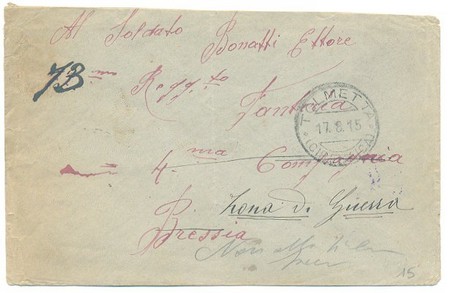 Al Soldato Bonatti Ettore
73mo Regg.to
Fanteria
TALMETTA
17.8.15
4.ma Compagnia
Zona di Guerra
Bressia
15